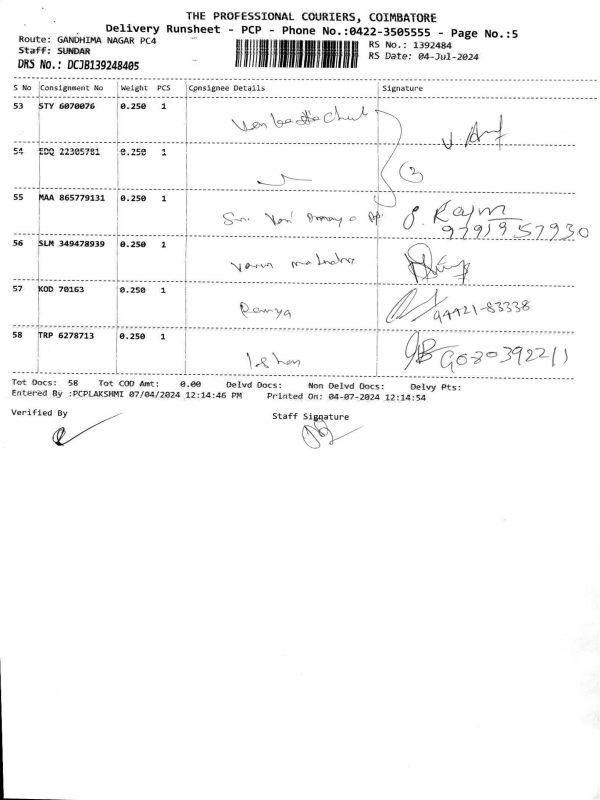 THE PROFESSIONAL COURIERS, COIMBATORE
Delivery Runsheet - PCP - Phone No.:0422-3505555 - Page No.:5
Route: GANDHIMA NAGAR PC4
RS No.: 1392484
Staff: SUNDAR
RS Date: 04-Jul-2024
DRS No.: DCJB139248405
S No Consignment No Weight PCS Consignee Details Signature
53 STY 6070076 0.250 1
54 EDQ 22305781 0.250 1
55 MAA 865779131 0.250 1
Sri
9791957930
56 SLM 349478939 0.250 1
57 KOD 70163 0.250 1
Ramya 94421-83338
58 TRP 6278713 0.250 1
Ishan 9080392211
Tot Docs: 58 Tot COD Amt: 0.00 Delvd Docs: Non Delvd Docs: Delvy Pts:
Entered By :PCPLAKSHMI 07/04/2024 12:14:46 PM Printed On: 04-07-2024 12:14:54
Verified By
Staff Signature